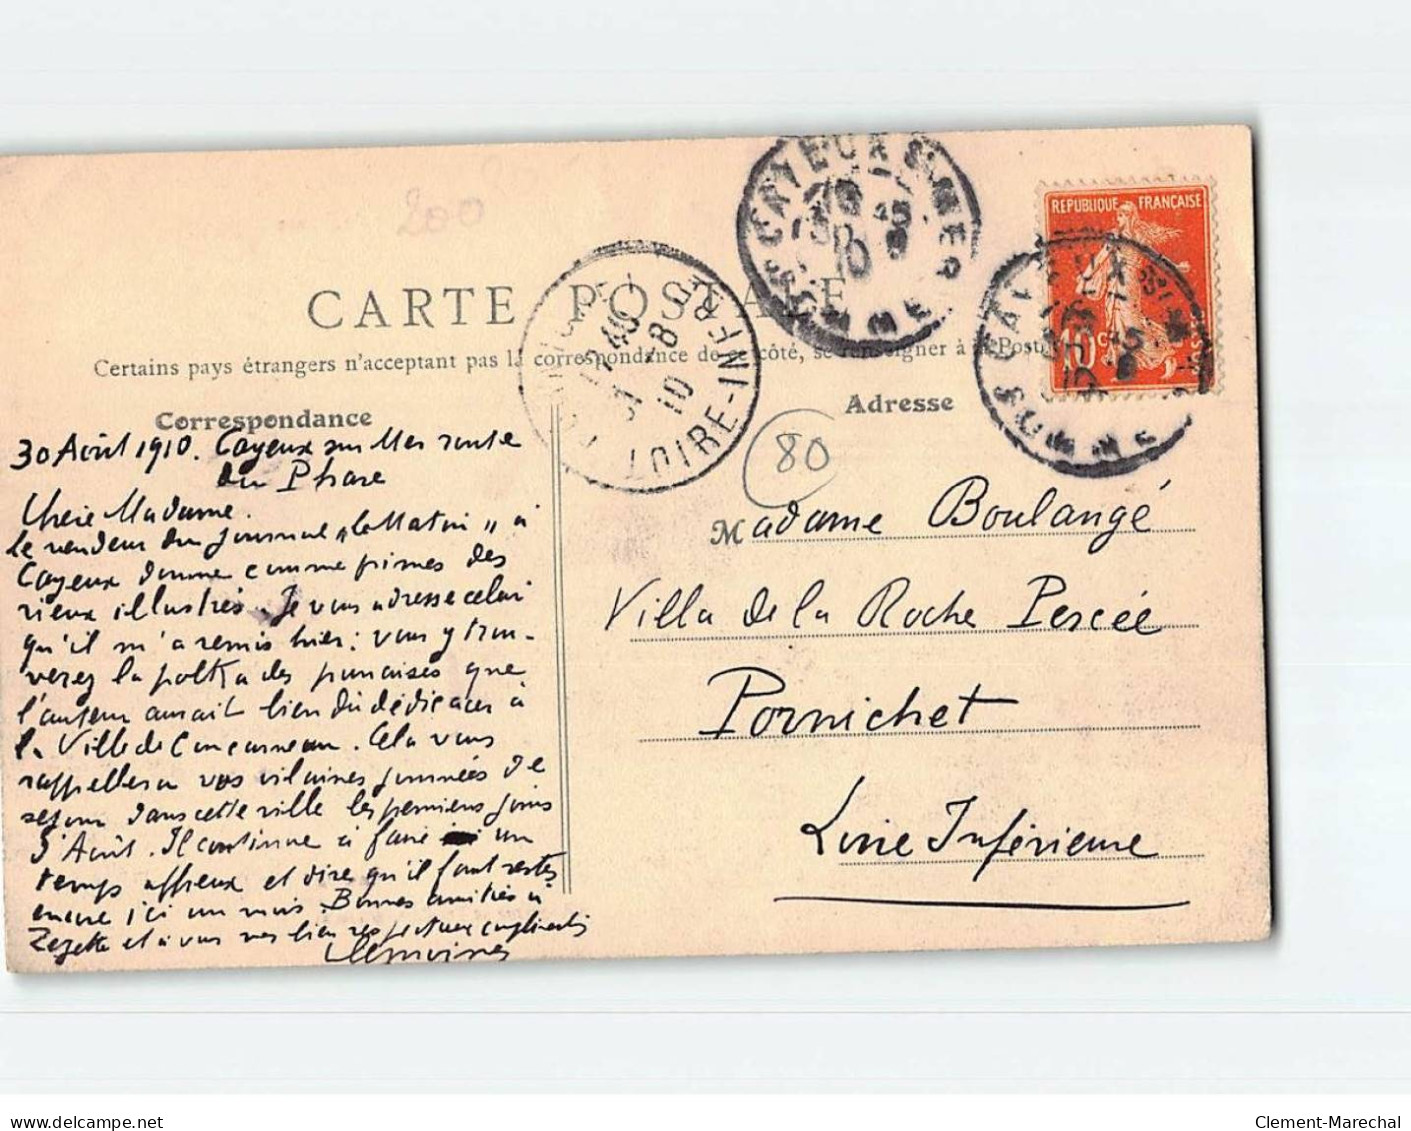 200
CAYEUX S MER
SOMME
30 -8 10
REPUBLIQUE FRANÇAISE
10 c
POSTES
CARTE POSTALE
Certains pays étrangers n'acceptant pas la correspondance de ce côté, se renseigner à la Poste
31 -8 10
LOIRE-INFRE
Correspondance
Adresse
80
30 Août 1910. Cayeux sur Mer route
du Phare
Chère Madame.
Le vendeur du journal "le Matin" à
Cayeux donne comme primes des
vieux illustrés. Je vous adresse celui
qu'il m'a remis hier: vous y trou-
verez la polka des punaises que
l'auteur aurait bien dû dédicacer à
la Ville de Concarneau. Cela vous
rappellera vos vilaines journées de
séjour dans cette ville les premiers jours
d'Août. Il continue à faire ici un
temps affreux et dire qu'il faut rester
encore ici un mois. Bonnes amitiés à
Zezette et à vous mes bien respectueux compliments
Madame Boulangé
Villa de la Roche Percée
Pornichet
Loire Inférieure
delcampe.net
Clement-Marechal